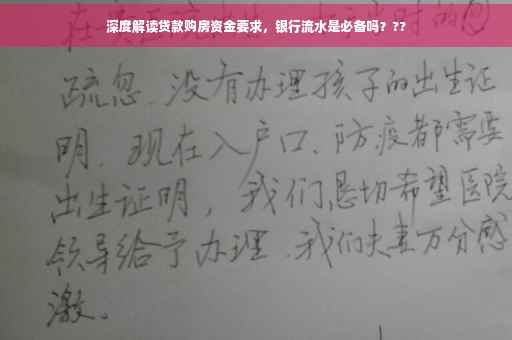 深度解读贷款购房资金要求，银行流水是必备吗？??
疏忽.没有办理孩子的出生证
明.现在入户口、防疫都需要
出生证明，我们恳切希望医院
领导给予办理.我们夫妻万分感
激。